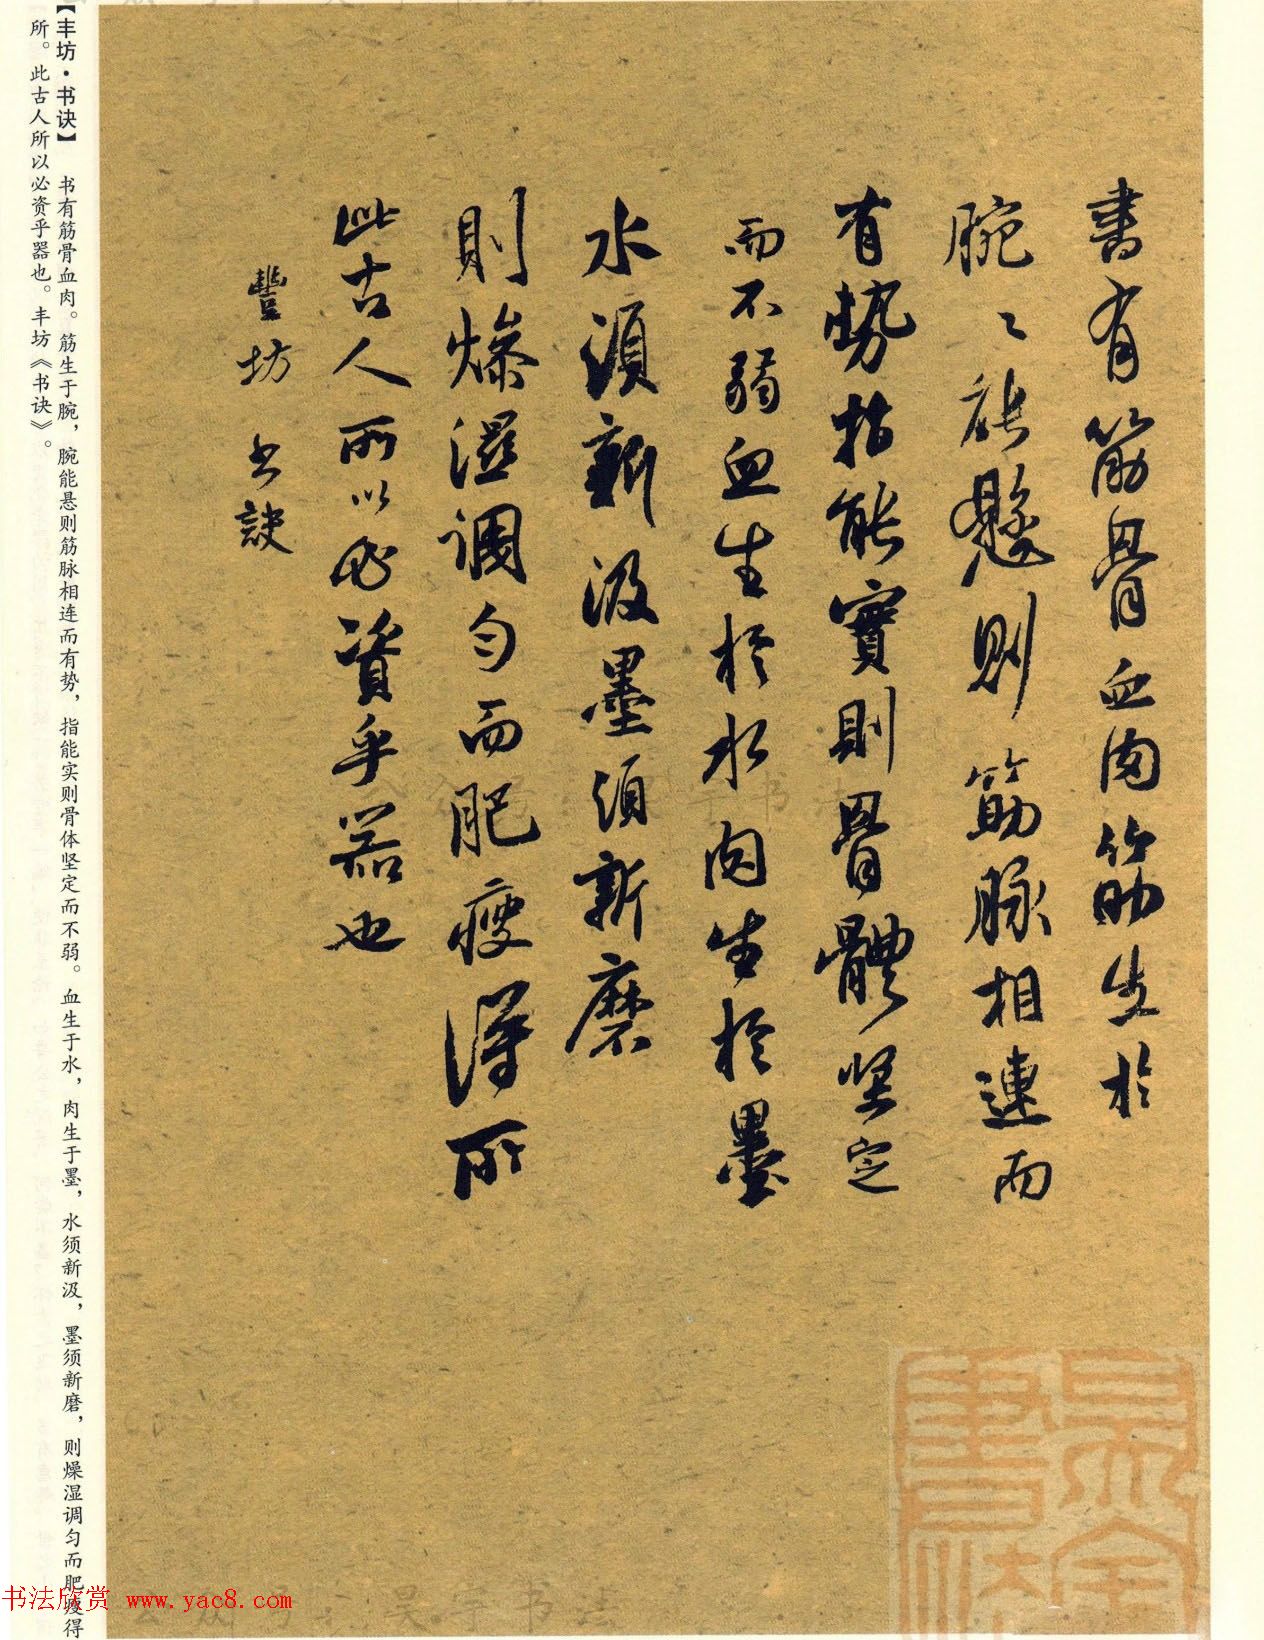 書有筋骨血肉筋生於
腕〻能懸則筋脉相連而
有势指能實則骨體坚定
而不弱血生於水肉生於墨
水須新汲墨須新磨
則燥濕調匀而肥瘦得所
此古人所以必資乎器也
豐坊书訣
【丰坊·书诀】 书有筋骨血肉。筋生于腕，腕能悬则筋脉相连而有势，指能实则骨体坚定而不弱。血生于水，肉生于墨，水须新汲，墨须新磨，则燥湿调匀而肥瘦得
所。此古人所以必资乎器也。丰坊《书诀》。
书法欣赏 www.yac8.com
公众号：吴宇书法